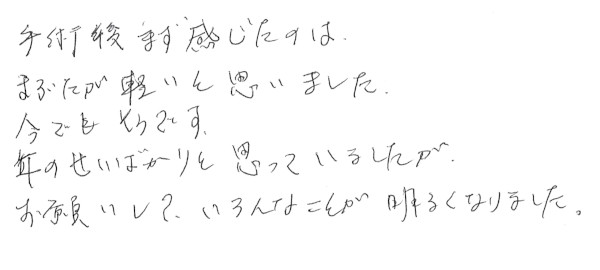 手術後まず感じたのは.
まぶたが軽いと思いました.
今でもそうです.
年のせいばかりと思っていましたが.
お願いして、いろんなことが明るくなりました。